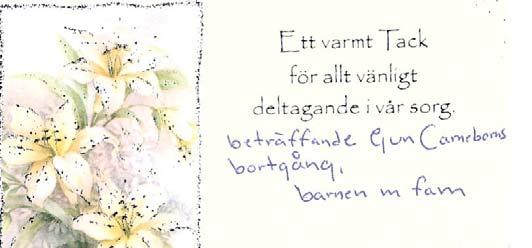 Ett varmt Tack
för allt vänligt
deltagande i vår sorg.
beträffande Gun Cameborns
bortgång,
barnen m fam